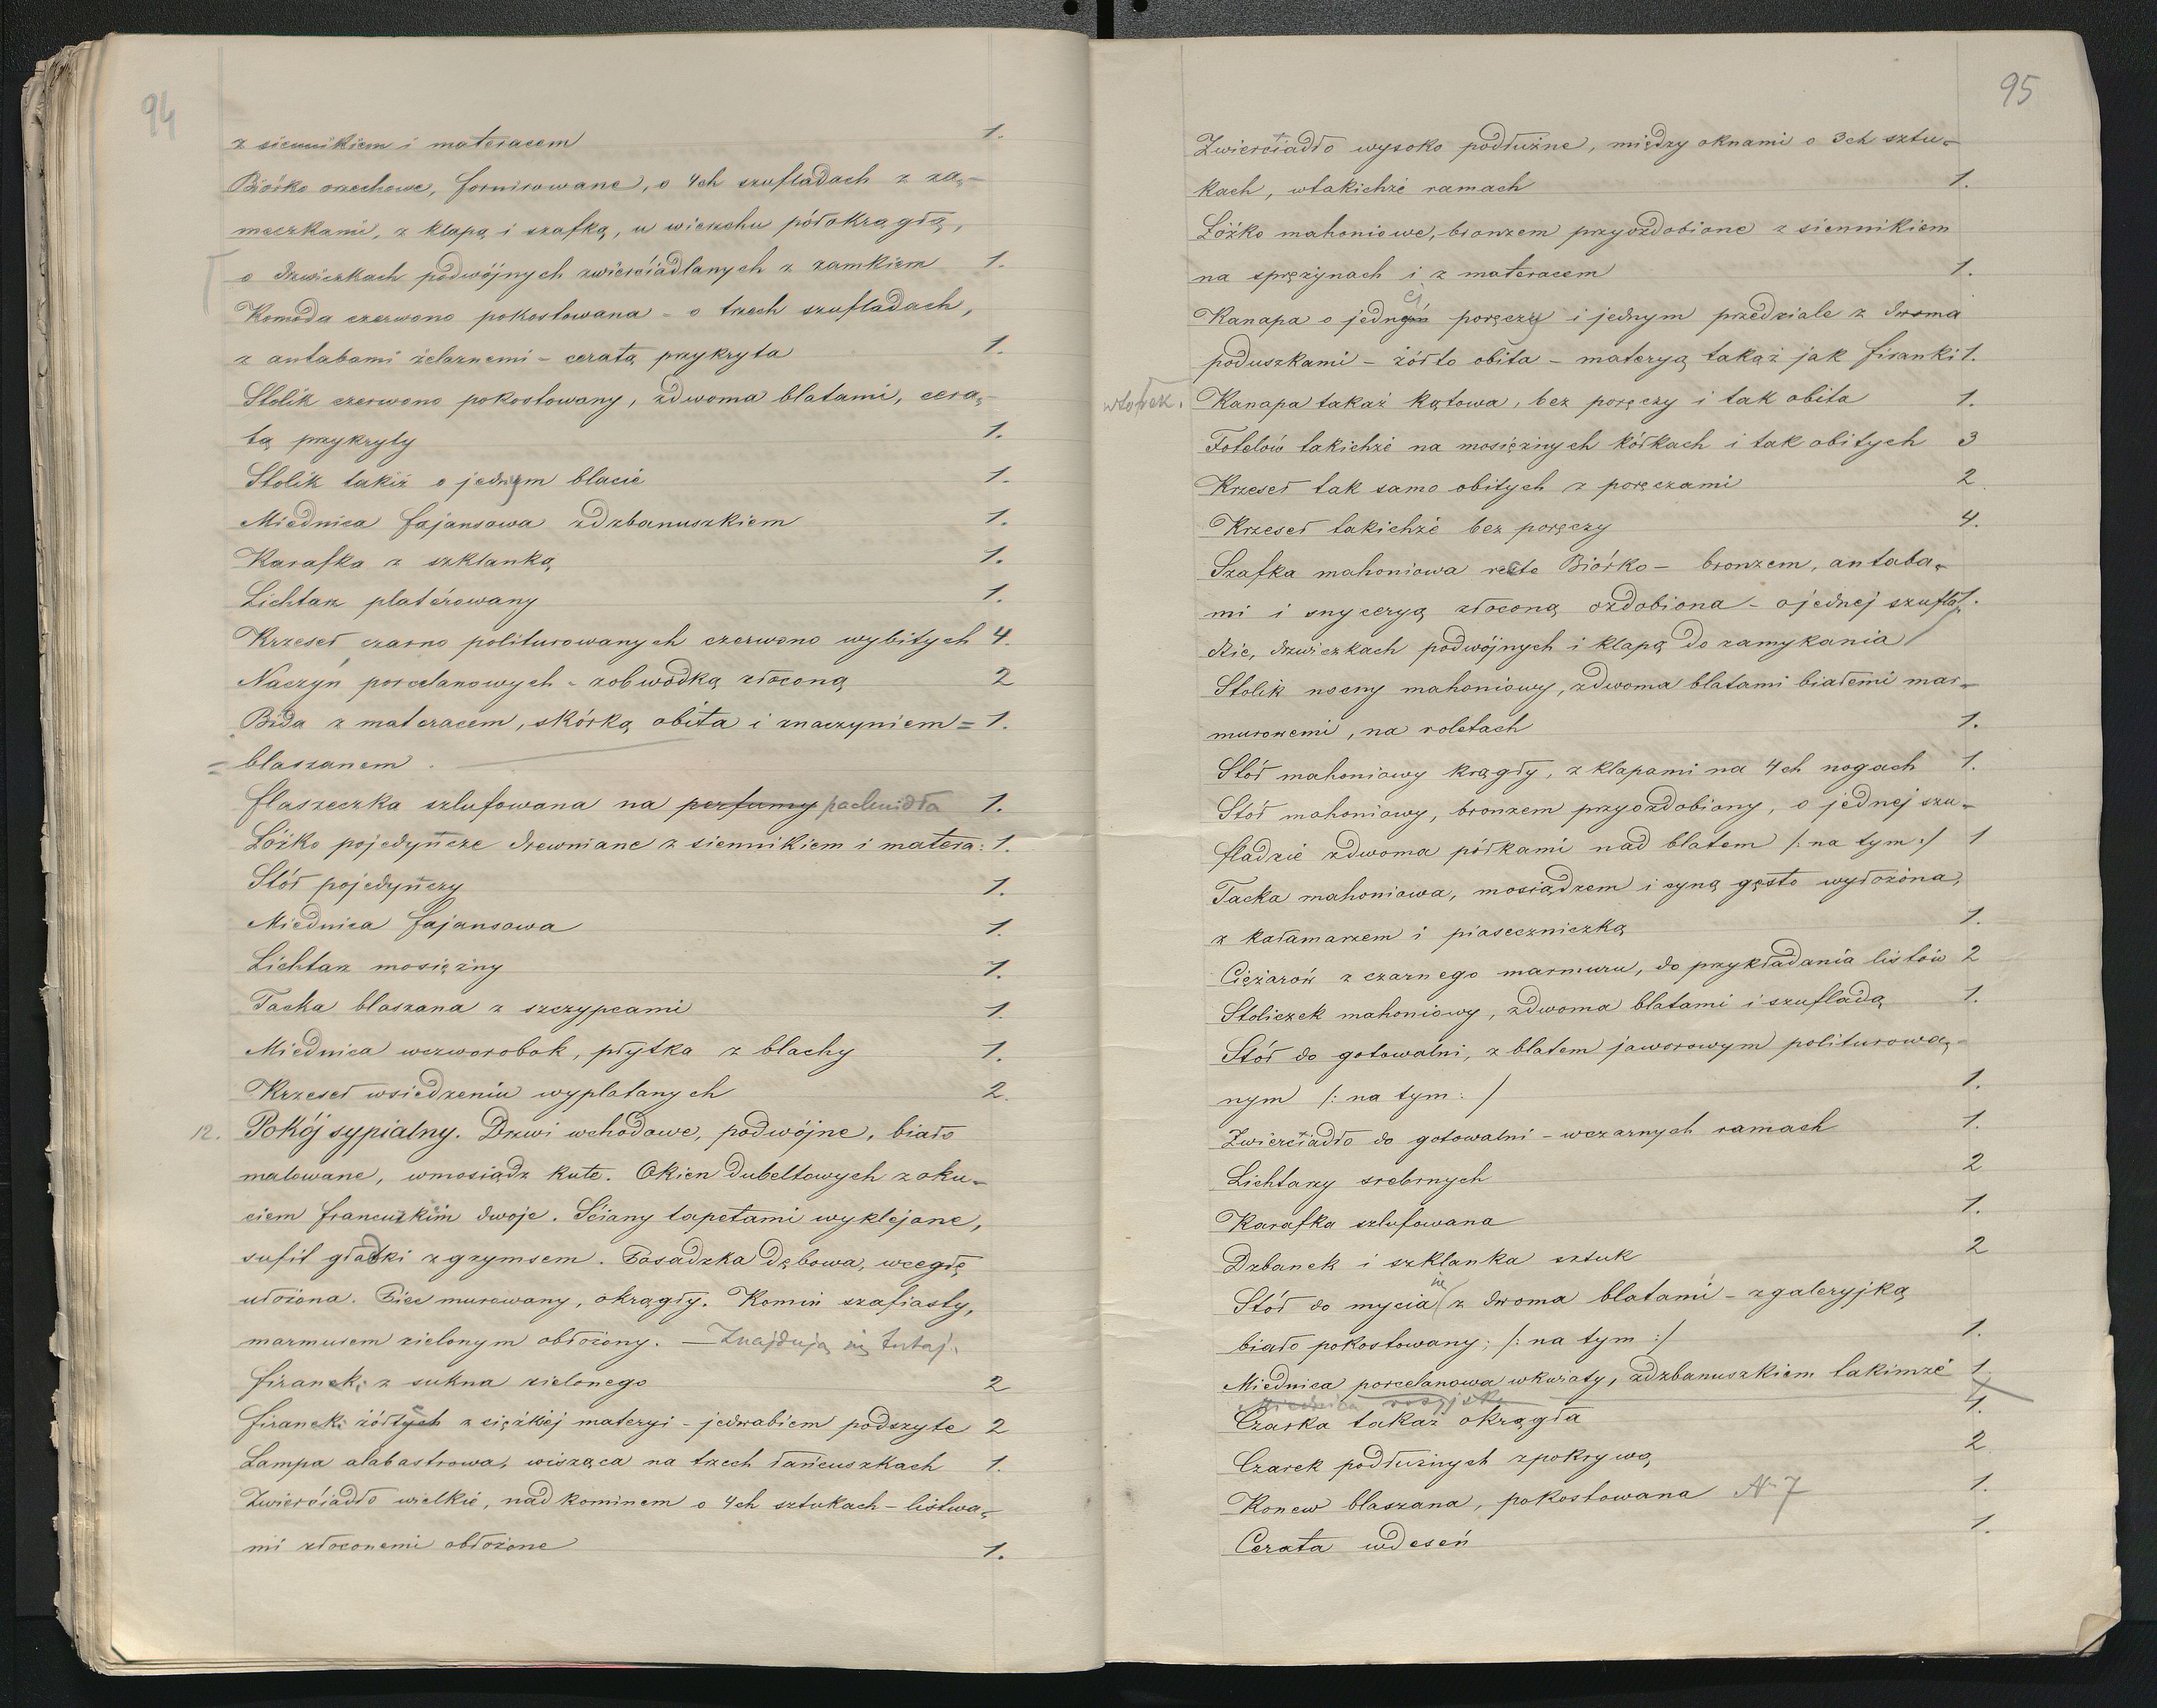 94
z siennikiem i materacem 1.
Biórko orzechowe, fornirowane, o 4ch szufladach z za-
meczkami, z klapą i szafką, u wierzchu półokrągłą,
o drzwiczkach podwójnych zwierciadlanych z zamkiem 1.
Komoda czerwono pokostowana - o trzech szufladach,
z antabami żelaznemi - ceratą przykryta 1.
Stolik czerwono pokostowany, zdwoma blatami, cera-
tą przykryty 1.
Stolik takiż o jednym blacie 1.
Miednica fajansowa zdzbanuszkiem 1.
Karafka z szklanką 1.
Lichtarz platerowany 1.
Krzeseł czarno politurowanych czerwono wybitych 4.
Naczyń porcelanowych - zobwódką złoconą 2
Bida z materacem, skórką obita i znaczyniem = 1.
= blaszanem.
flaszeczka szlufowana na perfumy pachnidła 1.
Łóżko pojedyńcze drewniane z siennikiem i matera: 1.
Stół pojedyńczy 1.
Miednica fajansowa 1.
Lichtarz mosiężny 1.
Tacka blaszana z szczypcami 1.
Miednica wczworobok, płytka z blachy 1.
Krzeseł wsiedzeniu wyplatanych 2.
12. Pokój sypialny. Drzwi wchodowe, podwójne, biało
malowane, wmosiądz kute. Okien dubeltowych z oku-
ciem francuzkim dwoje. Ściany tapetami wyklejane,
sufit gładki z gzymsem. Posadzka dębowa, wcegłę
ułożona. Piec murowany, okrągły. Komin szafiasty,
marmurem zielonym obłożony. — Znajdują się tutaj.
firanek: z sukna zielonego 2
firanek: żółtych z ciężkiej materyi - jedwabiem podszyte 2
Lampa alabastrowa, wisząca na trzech łańcuszkach 1.
Zwierciadło wielkie, nad kominem o 4ch sztukach - listwa-
mi złoconemi obłożone 1.
95
Zwierciadło wysoko podłużne, między oknami o 3ch sztu-
kach, wtakichże ramach 1.
Łóżko mahoniowe, bronzem przyozdobione z siennikiem
na sprężynach i z materacem 1.
Kanapa o jednej poręczy i jednym przedziale z dwoma
poduszkami - żółto obita - materyą takąż jak firanki 1.
Kanapa takaż kątowa, bez poręczy i tak obita 1.
Fotelów takichże na mosiężnych kółkach i tak obitych 3
Krzeseł tak samo obitych z poręczami 2
Krzeseł takichże bez poręczy 4.
Szafka mahoniowa recte Biórko - bronzem, antaba-
mi i snyceryą złoconą ozdobiona - ojednej szufla- 1.
dzie, drzwiczkach podwójnych i klapą do zamykania
Stolik nocny mahoniowy, zdwoma blatami białemi mar-
murowemi, na roletach 1.
Stół mahoniowy krągły, z klapami na 4ch nogach 1.
Stół mahoniowy, bronzem przyozdobiony, o jednej szu-
fladzie zdwoma półkami nad blatem /: na tym :/ 1
Tacka mahoniowa, mosiądzem i cyną gęsto wyłożona,
z kałamarzem i piaseczniczką 1.
Ciężarów z czarnego marmuru, do przykładania listów 2
Stoliczek mahoniowy, zdwoma blatami i szufladą 1.
Stół do gotowalni, z blatem jaworowym politurowa-
nym /: na tym :/ 1.
Zwierciadło do gotowalni - wczarnych ramach 1.
Lichtarzy srebrnych 2
Karafka szlufowana 1.
Dzbanek i szklanka sztuk 2
Stół do mycia się z dwoma blatami - zgaleryjką
biało pokostowany; /: na tym :/ 1.
Miednica porcelanowa wkwiaty, zdzbanuszkiem takimże 1
Czarka takaż okrągła 1.
Czarek podłużnych zpokrywą 2
Konew blaszana, pokostowana N-7 1.
Cerata wdeseń 1.